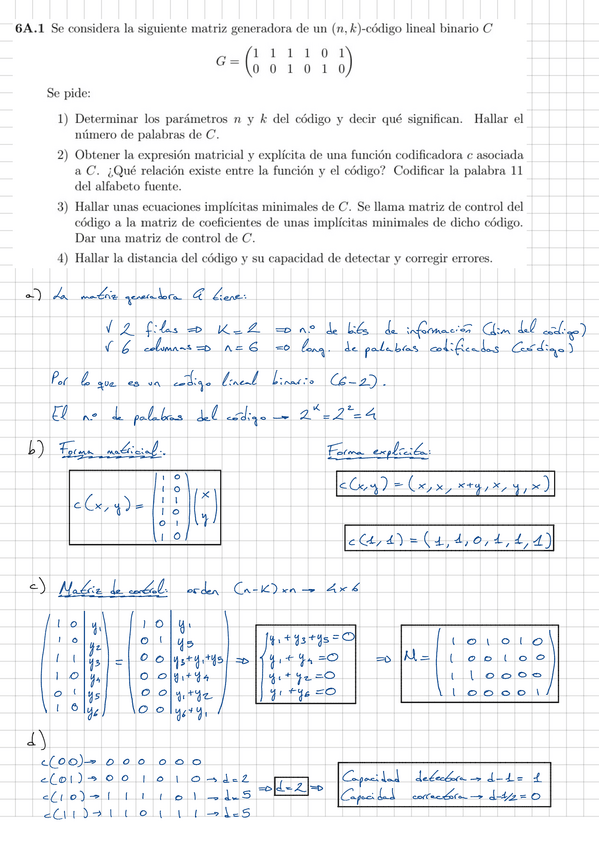 6A.1 Se considera la siguiente matriz generadora de un (n, k)-código lineal binario C
G = (1 1 1 1 0 1
0 0 1 0 1 0)
Se pide:
1) Determinar los parámetros n y k del código y decir qué significan. Hallar el
número de palabras de C.
2) Obtener la expresión matricial y explícita de una función codificadora c asociada
a C. ¿Qué relación existe entre la función y el código? Codificar la palabra 11
del alfabeto fuente.
3) Hallar unas ecuaciones implícitas minimales de C. Se llama matriz de control del
código a la matriz de coeficientes de unas implícitas minimales de dicho código.
Dar una matriz de control de C.
4) Hallar la distancia del código y su capacidad de detectar y corregir errores.
a) La matriz generadora G tiene:
√ 2 filas ⇒ K = 2 ⇒ n.º de bits de información (dim del código)
√ 6 columnas ⇒ n = 6 ⇒ long. de palabras codificadas (código)
Por lo que es un código lineal binario (6-2).
El n.º de palabras del código → 2^K = 2^2 = 4
b) Forma matricial: Forma explícita:
c(x,y) = (1 0
1 0
1 1
1 0
0 1
1 0) (x
y)
c(x,y) = (x, x, x+y, x, y, x)
c(1,1) = (1,1,0,1,1,1)
c) Matriz de control: orden (n-K)xn → 4x6
(1 0 | y1
1 0 | y2
1 1 | y3
1 0 | y4
0 1 | y5
1 0 | y6)
=
(1 0 | y1
0 1 | y5
0 0 | y3+y1+y5
0 0 | y1+y4
0 0 | y1+y2
0 0 | y6+y1)
⇒
{y1+y3+y5=0
y1+y4=0
y1+y2=0
y1+y6=0
⇒ M =
(1 0 1 0 1 0
1 0 0 1 0 0
1 1 0 0 0 0
1 0 0 0 0 1)
d)
c(00)→ 0 0 0 0 0 0
c(01)→ 0 0 1 0 1 0 → d=2
c(10)→ 1 1 1 1 0 1 → d=5
c(11)→ 1 1 0 1 1 1 → d=5
⇒ d=2 ⇒
Capacidad detectora → d-1 = 1
Capacidad correctora → d-1/2 = 0